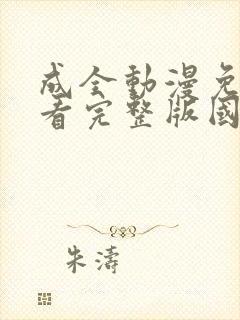 成全動漫免
看完整版國
朱濤